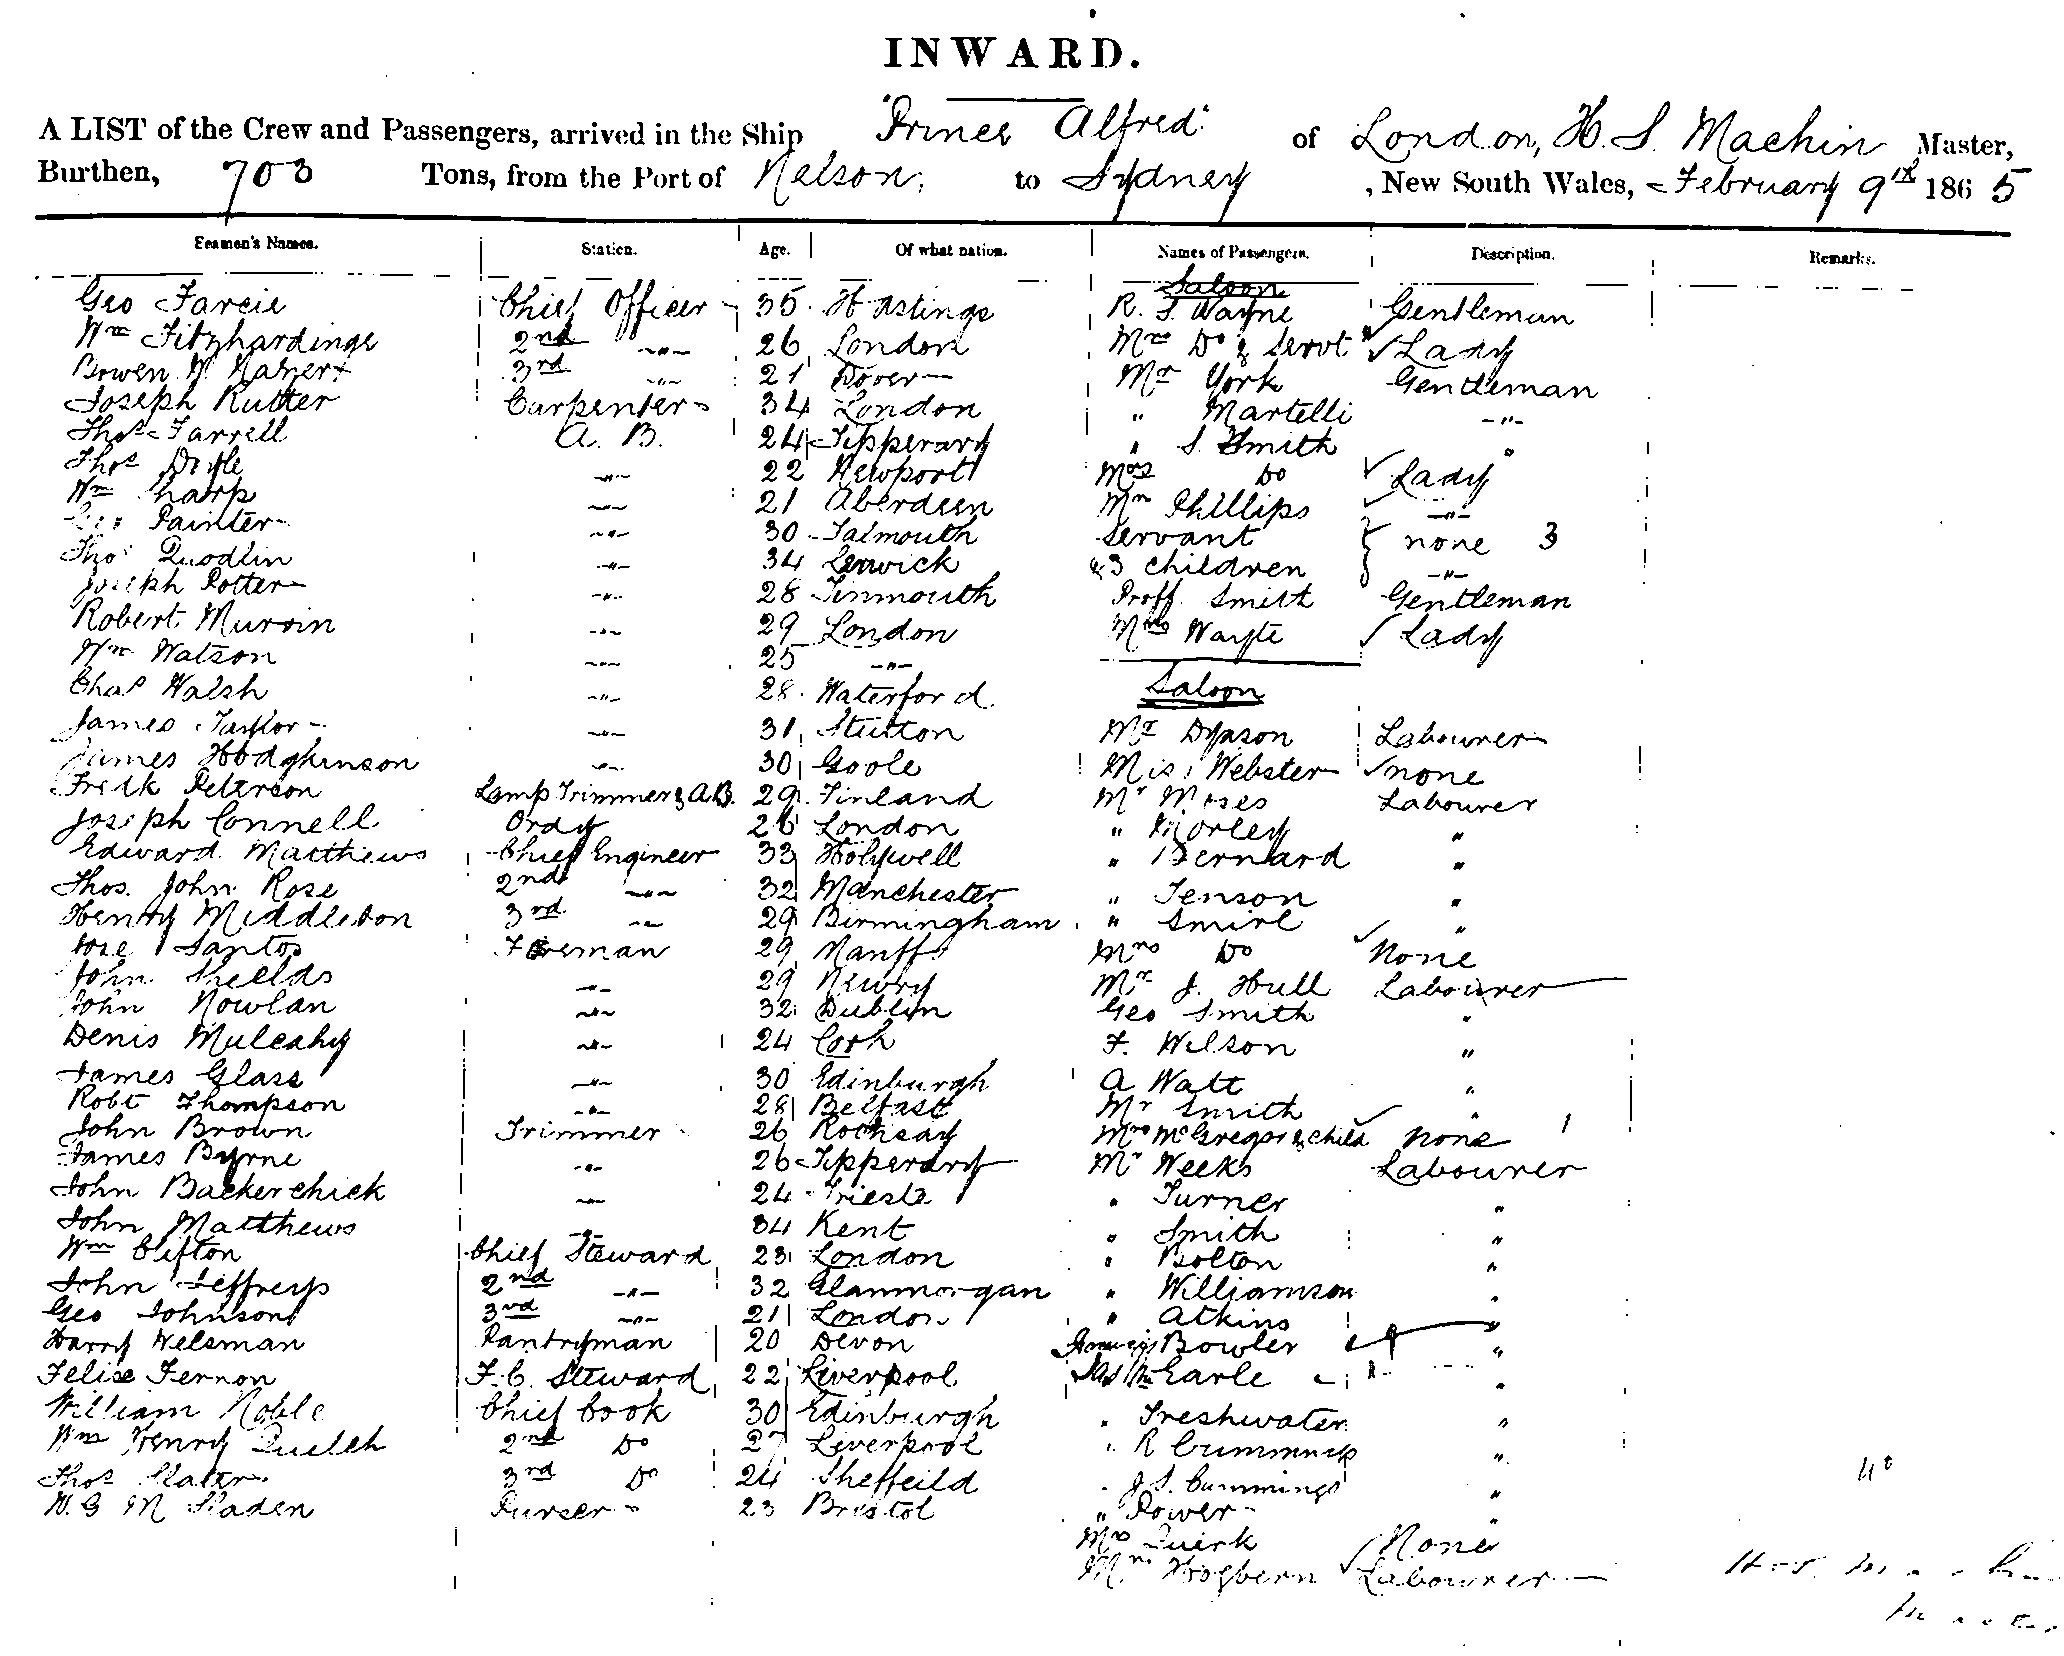 INWARD.
A LIST of the Crew and Passengers, arrived in the Ship "Prince Alfred" of London, H. S. Machin Master,
Burthen, 703 Tons, from the Port of Nelson, to Sydney, New South Wales, February 9th 1865
Seamen's Names. Station. Age. Of what nation. Names of Passengers. Description. Remarks.
Saloon
Geo Farcie Chief Officer 35 Hastings R. S. Wayne Gentleman
Wm Fitzhardinge 2nd -"- 26 London Mrs Do & Servt Lady
Bowen 3rd -"- 21 Dover Mr York Gentleman
Joseph Rutter Carpenter 34 London " Martelli -"-
Thos Farrell A. B. 24 Tipperary " S. Smith "
Thos Doyle -"- 22 Newport Mrs Do Lady
Wm Sharp -"- 21 Aberdeen Mrs Phillips -"-
Painter -"- 30 Falmouth Servant none 3
Thos Quodlin -"- 34 Lerwick & 3 children -"-
Joseph Potter -"- 28 Tinmouth Proff. Smith Gentleman
Robert Murvin -"- 29 London Mrs Wayte Lady
Wm Watson -"- 25 -"-
Chas Walsh -"- 28 Waterford Saloon
James Taylor -"- 31 Stutton Mr Dyason Labourer
James Hodghinson -"- 30 Goole Miss Webster none
Fredk Peterson Lamp Trimmer & A.B. 29 Finland Mr Moses Labourer
Joseph Connell Ordy 26 London " Morley "
Edward Matthews Chief Engineer 33 Holywell " Bernard "
Thos. John Rose 2nd -"- 32 Manchester " Jenson "
Henry Middleton 3rd -"- 29 Birmingham " Smirl "
Jose Santos Foreman 29 Manffs Mrs Do None
John Shields -"- 29 Newry Mr J. Hull Labourer
John Nowlan -"- 32 Dublin Geo Smith "
Denis Mulcahy -"- 24 Cork F. Wilson "
James Glass -"- 30 Edinburgh A Watt "
Robt Thompson -"- 28 Belfast Mr Smith "
John Brown Trimmer 26 Rothsay Mrs McGregor & Child none 1
James Byrne -"- 26 Tipperary Mr Weeks Labourer
John Backerchick -"- 24 Trieste " Turner "
John Matthews -"- 34 Kent " Smith "
Wm Clifton Chief Steward 23 London " Bolton "
John Jeffreys 2nd -"- 32 Glanmorgan " Williamson "
Geo Johnson 3rd -"- 21 London " Atkins "
Harry Welsman Pantryman 20 Devon Bowler "
Felise Fernon F. C. Steward 22 Liverpool Earle "
William Noble Chief Cook 30 Edinburgh " Freshwater "
Wm Henry Quelch 2nd Do 27 Liverpool " R Cummings "
Thos Slater 3rd Do 24 Sheffeild " J. S. Cummings "
W. G M Sladen Purser 23 Bristol " Power "
Mrs Quirk None
Mr Hogbern Labourer